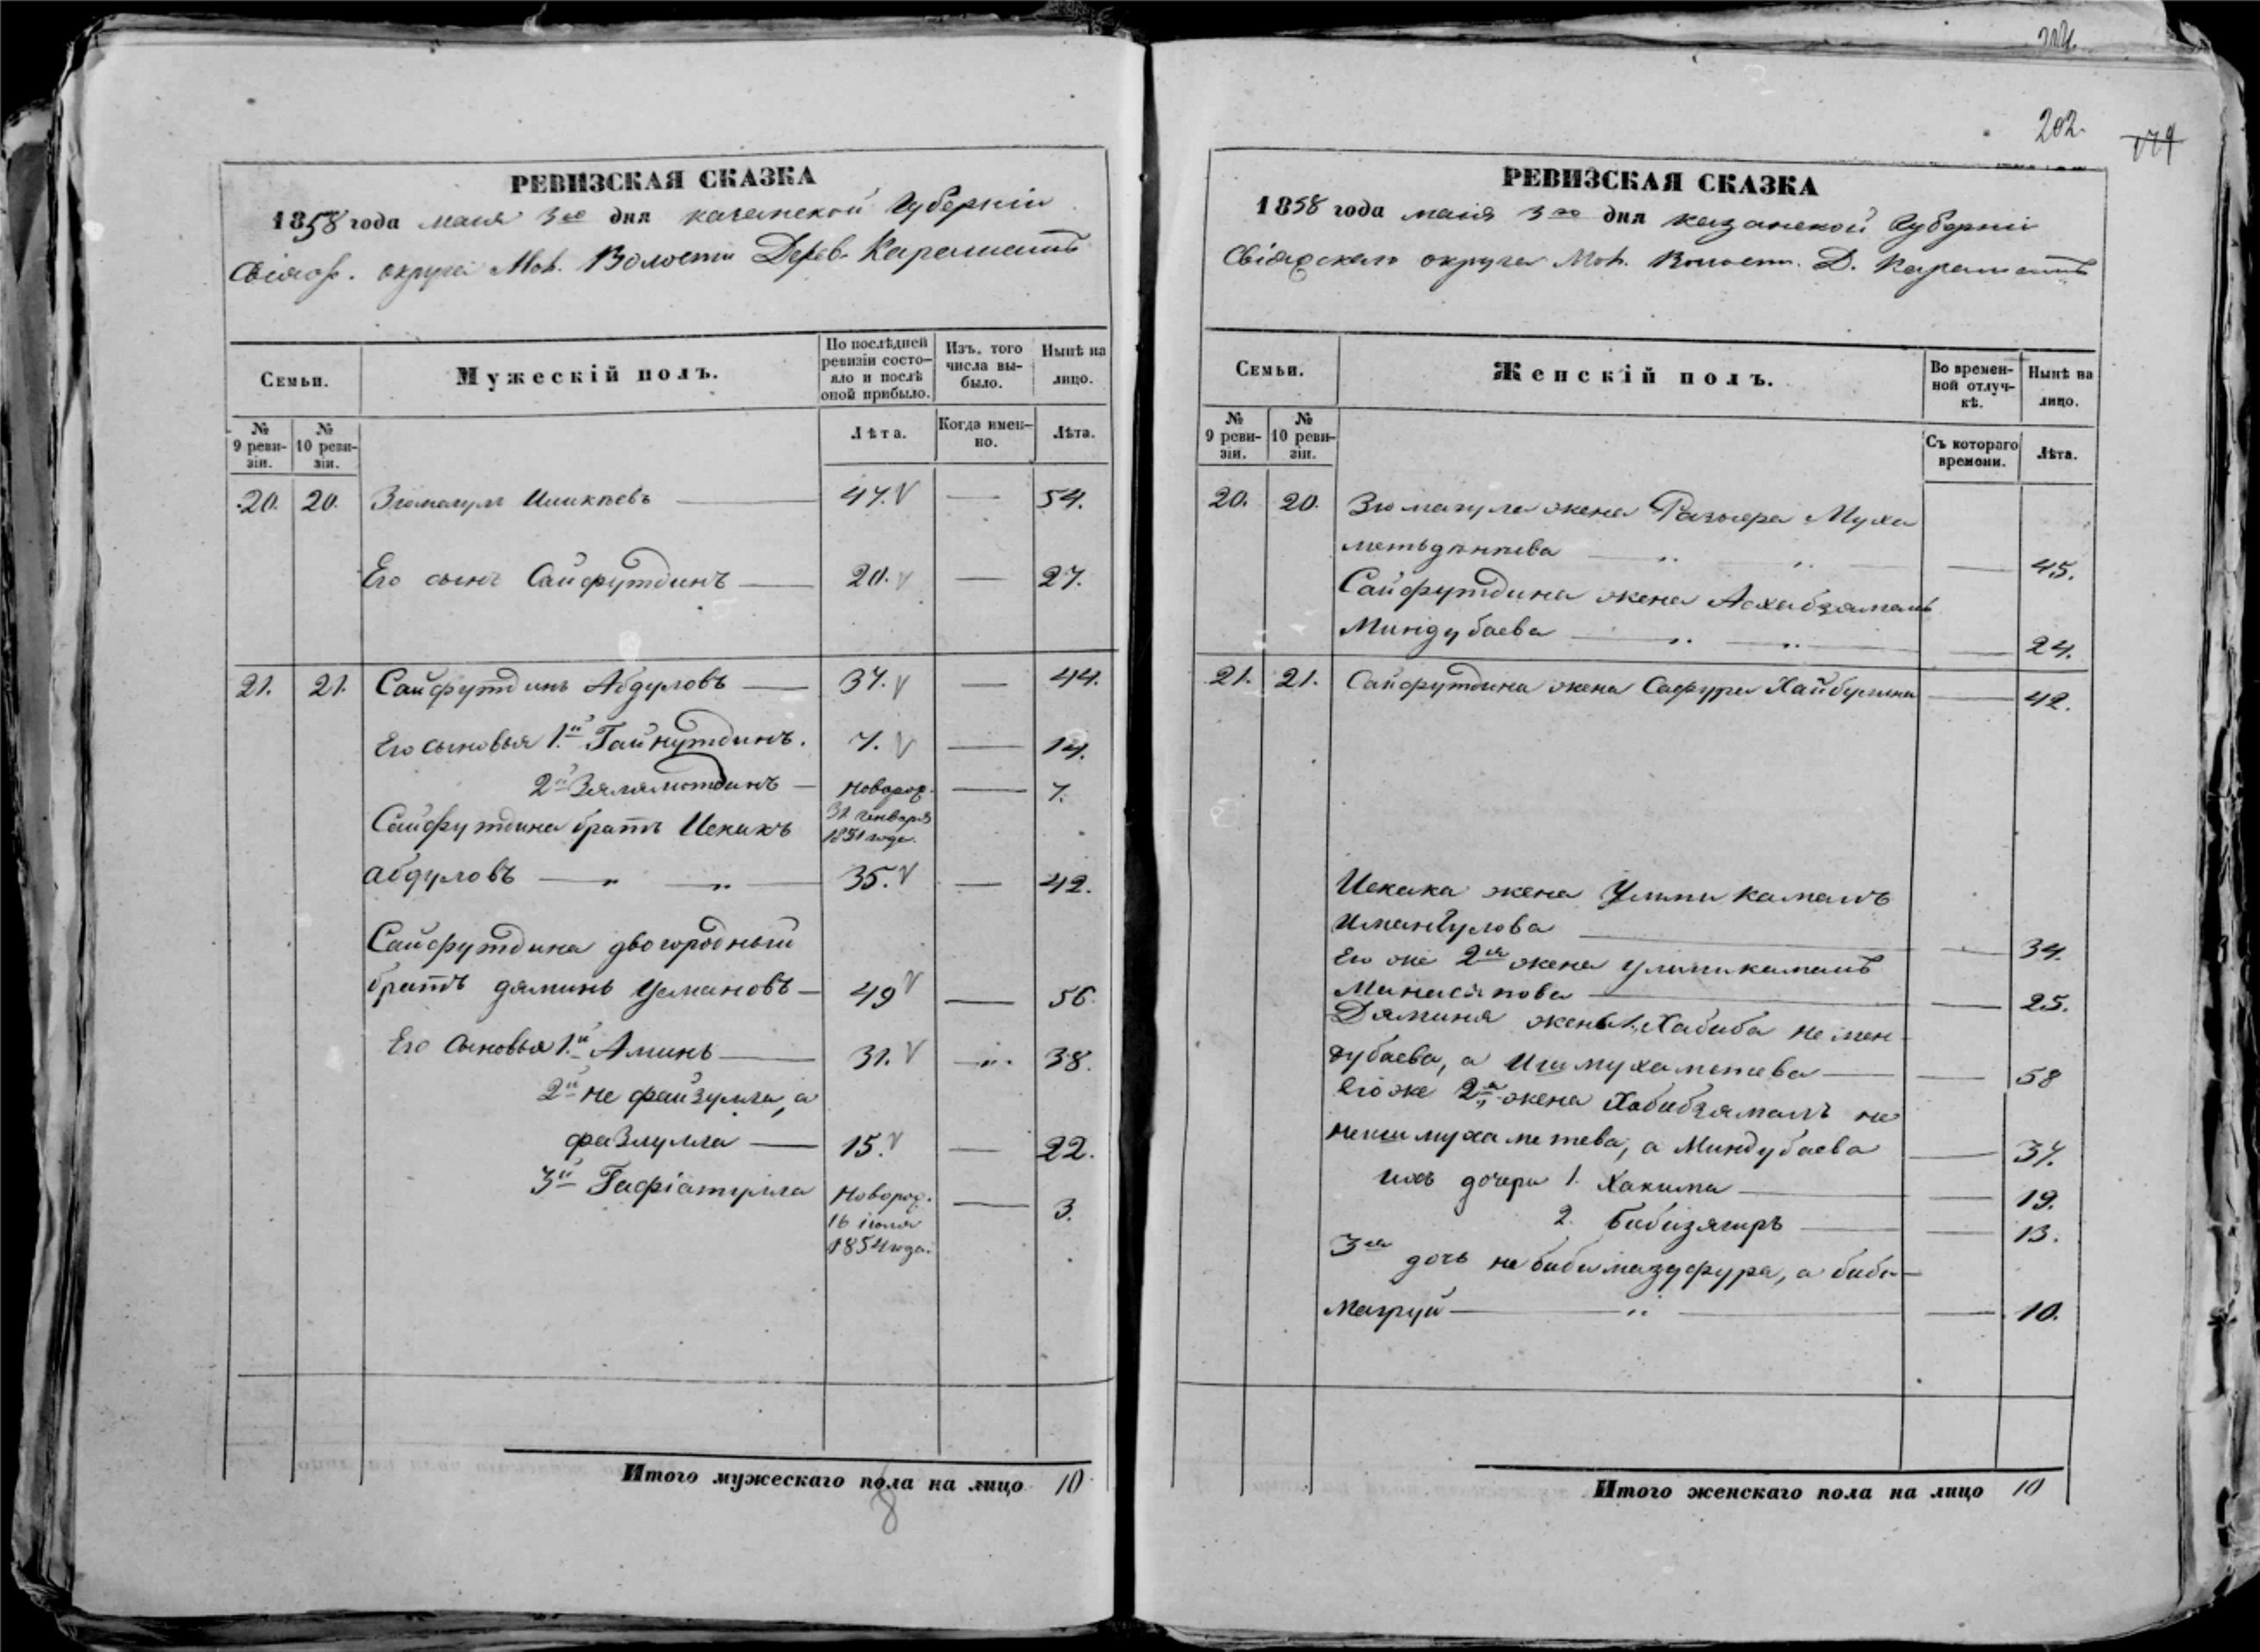 202.
РЕВИЗСКАЯ СКАЗКА
1858 года маия 3го дня казанской Губерніи
Свіяж. округа Мов. Волости Дерев. Карамышъ
Семьи.
Мужескій полъ.
По послѣдней ревизіи состояло и послѣ оной прибыло.
Изъ того числа выбыло.
Нынѣ на лицо.
№ 9 ревизіи.
№ 10 ревизіи.
Лѣта.
Когда именно.
Лѣта.
20. 20. Зюмагулъ Ишкѣевъ — 47. — 54.
Его сынъ Сайфутдинъ — 20. — 27.
21. 21. Сайфутдинъ Абдуловъ — 37. — 44.
Его сыновья 1.й Гайнутдинъ. 7. — 14.
2й Зялялютдинъ — Новорож. — 7.
31 генваря
Сайфутдина братъ Исхакъ
1851 года.
абдуловъ — „ — „ — 35. — 42.
Сайфутдина двоюродный
братъ дяминь Усмановъ — 49 — 56.
Его Сыновья 1.й Аминь — 31. — „ — 38.
2й не файзулла, а
фазлулла — 15. — 22.
3й Гафіатулла Новорож. — 3.
16 іюля
1854 года.
Итого мужескаго пола на лицо 10
8
РЕВИЗСКАЯ СКАЗКА
1858 года маія 3го дня казанской Губерніи
Свіяжскаго округа Мов. Волост. Д. Карамышъ
Семьи.
Женскій полъ.
Во временной отлучкѣ.
Нынѣ на лицо.
№ 9 ревизіи.
№ 10 ревизіи.
Съ котораго времени.
Лѣта.
20. 20. Зюмагула жена Муха
— „ — „ — 45.
Сайфутдина жена Асхабзямалъ
Миндубаева — „ — „ — 24.
21. 21. Сайфутдина жена Сафура Хайбулина — 42.
Исхака жена Уммикамалъ
Имангулова — 34.
Его же 2я жена уммикамалъ
— 25.
Дяминя жены 1. Хабиба не мен-
дубаева, а Ишмухаметева — 58
Его же 2я жена Хабибзямалъ не
неишмухаметева, а Миндубаева — 37.
ихъ дочери 1. Хакима — 19.
2. Бибизягиръ — 13.
3я дочь не бибимазуфура, а биби-
магруй — „ — 10.
Итого женскаго пола на лицо 10